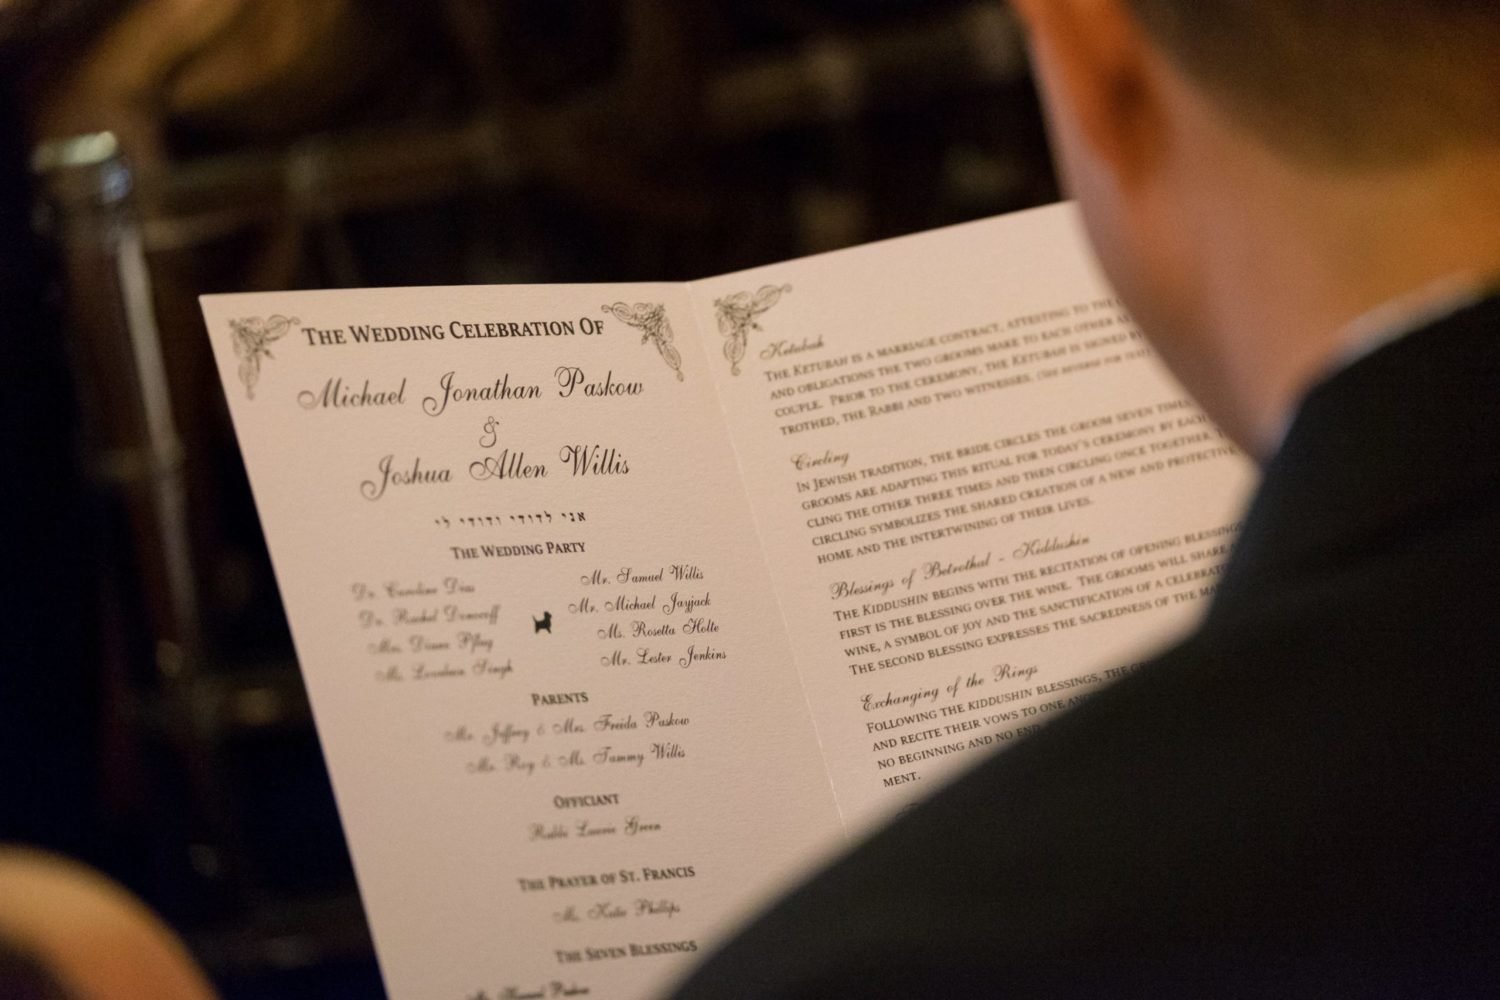 The Wedding Celebration Of
Michael Jonathan Paskow
&
Joshua Allen Willis
אני לדודי ודודי לי
The Wedding Party
Dr. Caroline Dias
Dr. Rachel
Mrs. Diana
Ms. Singh
Mr. Samuel Willis
Mr. Michael Jayjack
Ms. Rosetta Holte
Mr. Lester Jenkins
Parents
Mr. Jeffrey & Mrs. Freida Paskow
Mr. Roy & Ms. Tammy Willis
Officiant
Rabbi Laurie Green
The Prayer of St. Francis
Ms. Katie Phillips
The Seven Blessings
Paskow
Ketubah
The Ketubah is a marriage contract, attesting to the
and obligations the two grooms make to each other as
couple. Prior to the ceremony, the Ketubah is signed
trothed, the Rabbi and two witnesses. (See reverse for
Circling
In Jewish tradition, the bride circles the groom seven
grooms are adapting this ritual for today's ceremony by each
cling the other three times and then circling once together.
circling symbolizes the shared creation of a new and protective
home and the intertwining of their lives.
Blessings of Betrothal - Kiddushin
The Kiddushin begins with the recitation of opening
first is the blessing over the wine. The grooms will share
wine, a symbol of joy and the sanctification of a
The second blessing expresses the sacredness of the
Exchanging of the Rings
Following the Kiddushin blessings, the
and recite their vows to one
no beginning and no end
ment.